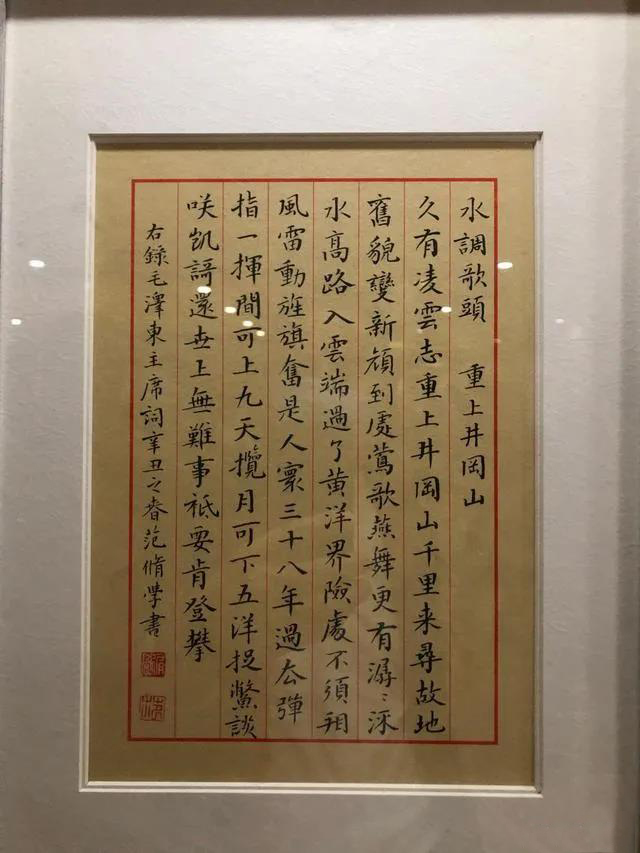 水調歌頭 重上井岡山
久有凌雲志重上井岡山千里来尋故地
舊貌變新顔到處鶯歌燕舞更有潺〻流
水高路入雲端過了黄洋界險處不須看
風雷動旌旗奮是人寰三十八年過去彈
指一揮間可上九天攬月可下五洋捉鱉談
咲凱謌還世上無難事祇要肯登攀
右錄毛澤東主席詞辛丑之春范脩學書